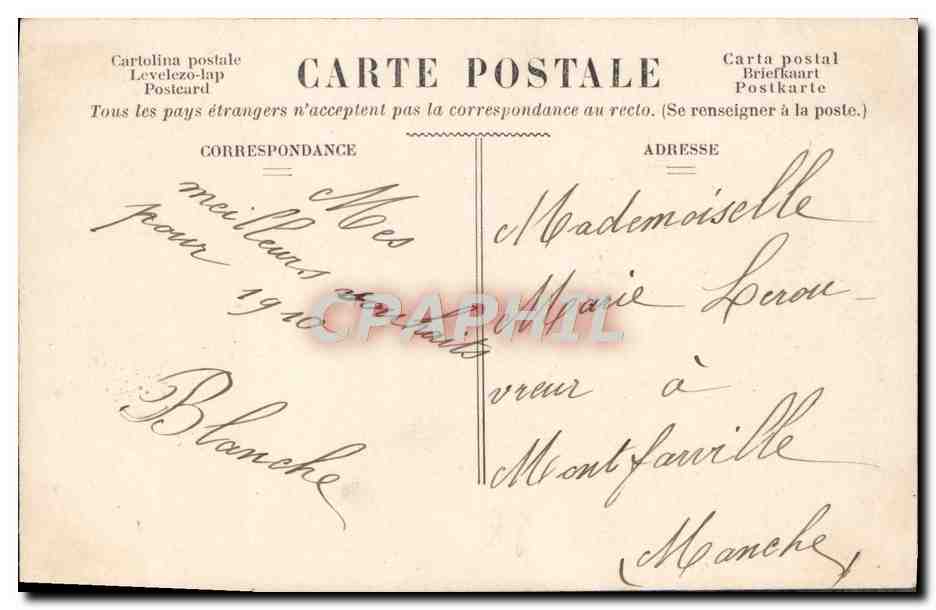 Cartolina postale
Levelezö-lap
Postcard
CARTE POSTALE
Carta postal
Briefkaart
Postkarte
Tous les pays étrangers n'acceptent pas la correspondance au recto. (Se renseigner à la poste.)
CORRESPONDANCE
Mes
meilleurs souhaits
pour 1910
Blanche
ADRESSE
Mademoiselle
Marie Lerou-
vreur à
Montfarville
Manche
CPAPHIL